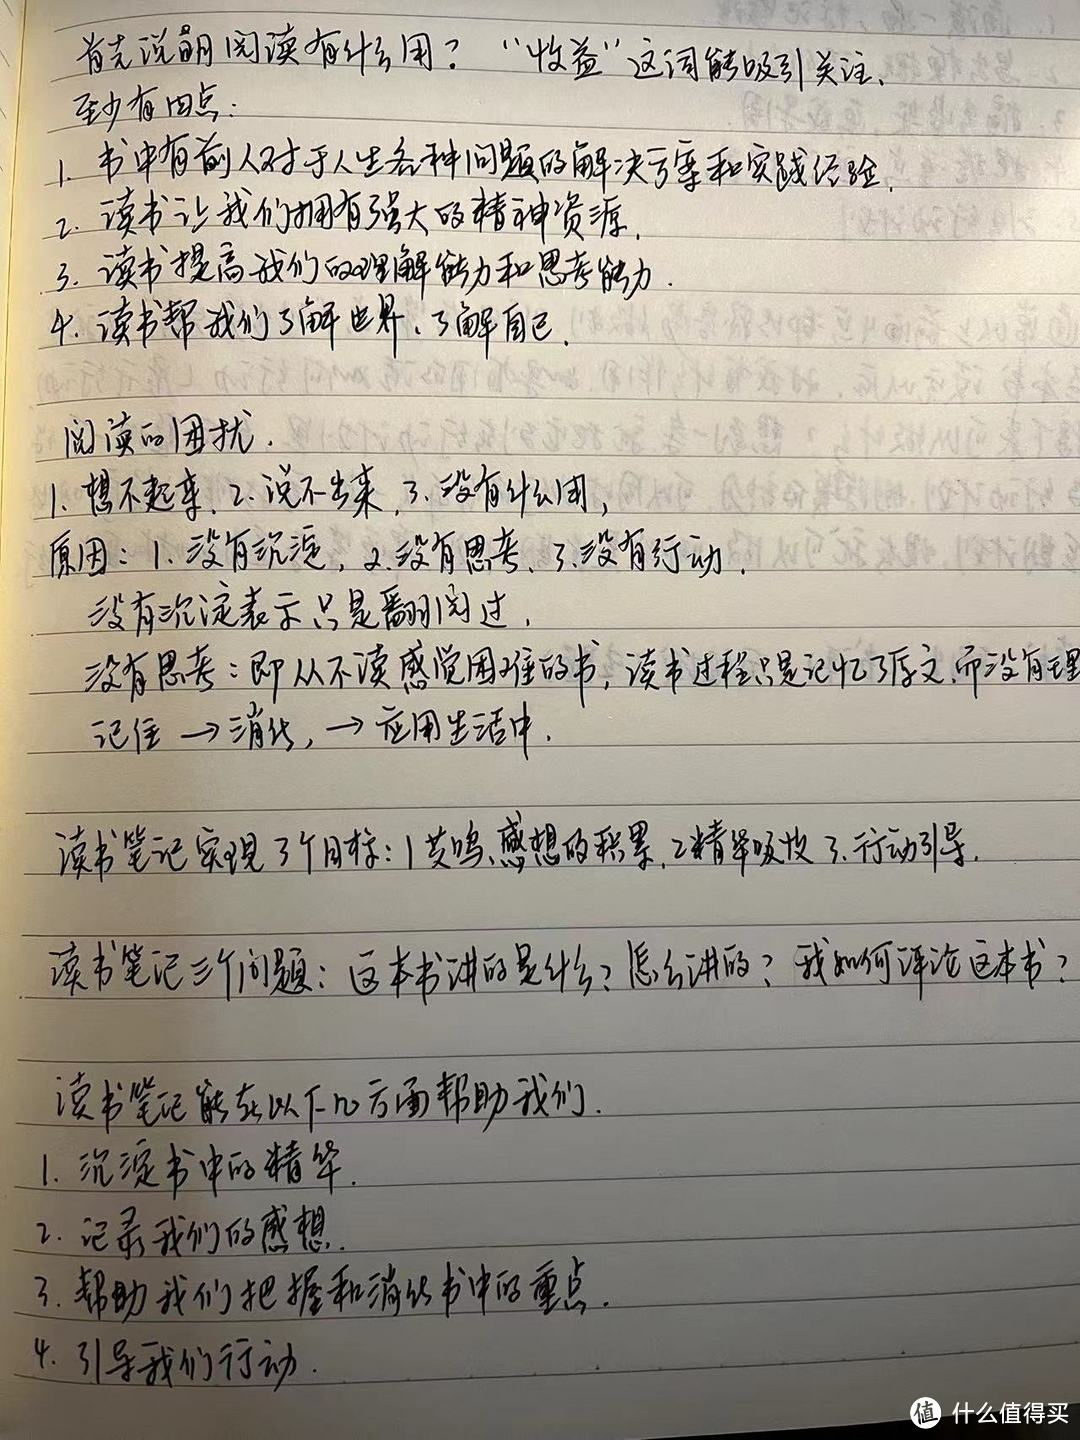 首先说明阅读有什么用？“收益”这词能吸引关注、
至少有四点：
1. 书中有前人对于人生各种问题的解决方案和实践经验.
2. 读书让我们拥有强大的精神资源.
3. 读书提高我们的理解能力和思考能力.
4. 读书帮我们了解世界、了解自己.
阅读的困扰.
1. 想不起来、2. 说不出来、3. 没有什么用,
原因：1. 没有沉淀, 2. 没有思考、3. 没有行动.
没有沉淀表示只是翻阅过.
没有思考：即从不读感觉困难的书, 读书过程只是记忆了原文.而没有理
记住 → 消化, → 应用生活中.
读书笔记实现3个目标：1共鸣、感想的积累, 2精华吸收 3. 行动引导.
读书笔记三个问题：这本书讲的是什么？怎么讲的？我如何评论这本书？
读书笔记能在以下几方面帮助我们.
1. 沉淀书中的精华.
2. 记录我们的感想.
3. 帮助我们把握和消化书中的重点.
4. 引导我们行动.
值 什么值得买